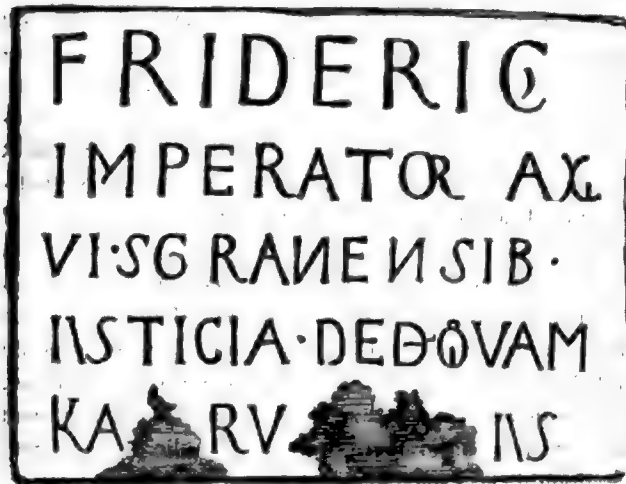 FRIDERIC
IMPERATOR
VI·SGRANENSIB·
IUSTICIA·DED·QVAM
KA RV